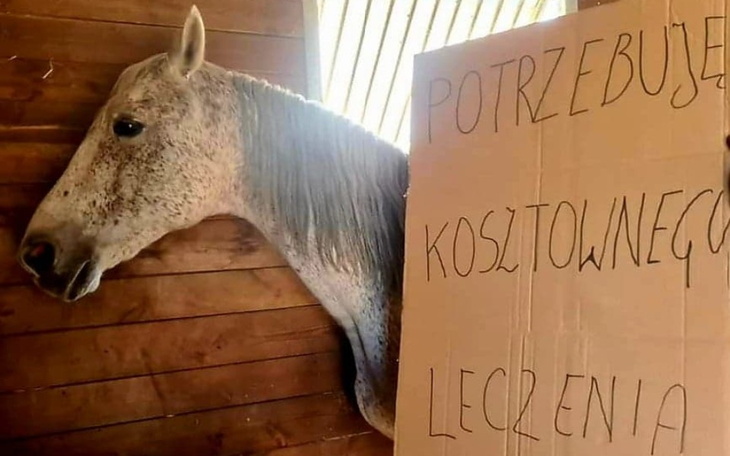 POTRZEBUJĘ
KOSZTOWNEGO
LECZENIA